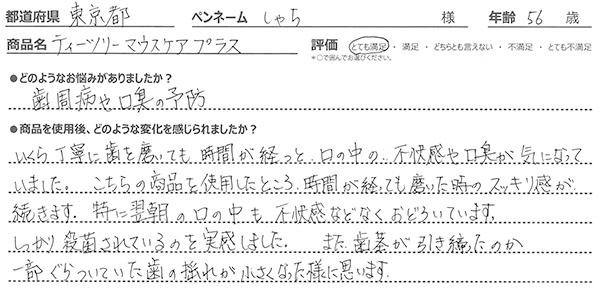 都道府県 東京都 ペンネーム しゃち 様 年齢 56 歳
商品名 ティーツリーマウスケアプラス 評価 とても満足 ・ 満足 ・ どちらとも言えない ・ 不満足 ・ とても不満足
*○で囲んでお選びください。
●どのようなお悩みがありましたか？
歯周病や口臭の予防
●商品を使用後、どのような変化を感じられましたか？
いくら丁寧に歯を磨いても時間が経つと口の中の不快感や口臭が気になって
いました。こちらの商品を使用したところ、時間が経っても磨いた時のスッキリ感が
続きます。特に翌朝の口の中も不快感などなくおどろいています。
しっかり殺菌されているのを実感しました。 また歯茎が引き締ったのか
一部ぐらついていた歯の揺れが小さくなった様に思います。